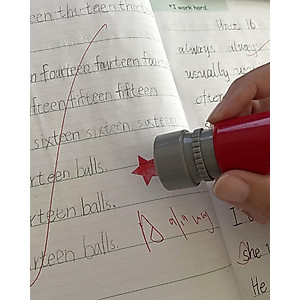 thirteen thirteen
fourteen fourteen fourteen
fifteen fifteen fifteen
sixteen sixteen sixteen
rteen balls.
rteen balls.
rteen balls.
I work hard.
Unit 16
always always
usually
often
I
She
He